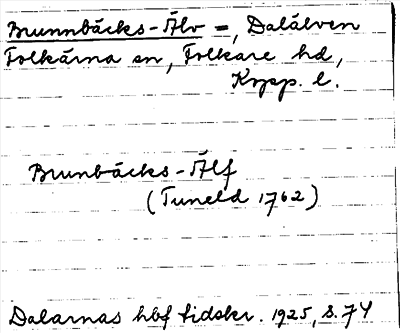 Brunnbäcks-Älv =, Dalälven
Folkärna sn, Folkare hd,
Kopp. l.
Brunbäcks-Älf
(Tuneld 1762)
Dalarnas hbf tidskr. 1925, s. 74